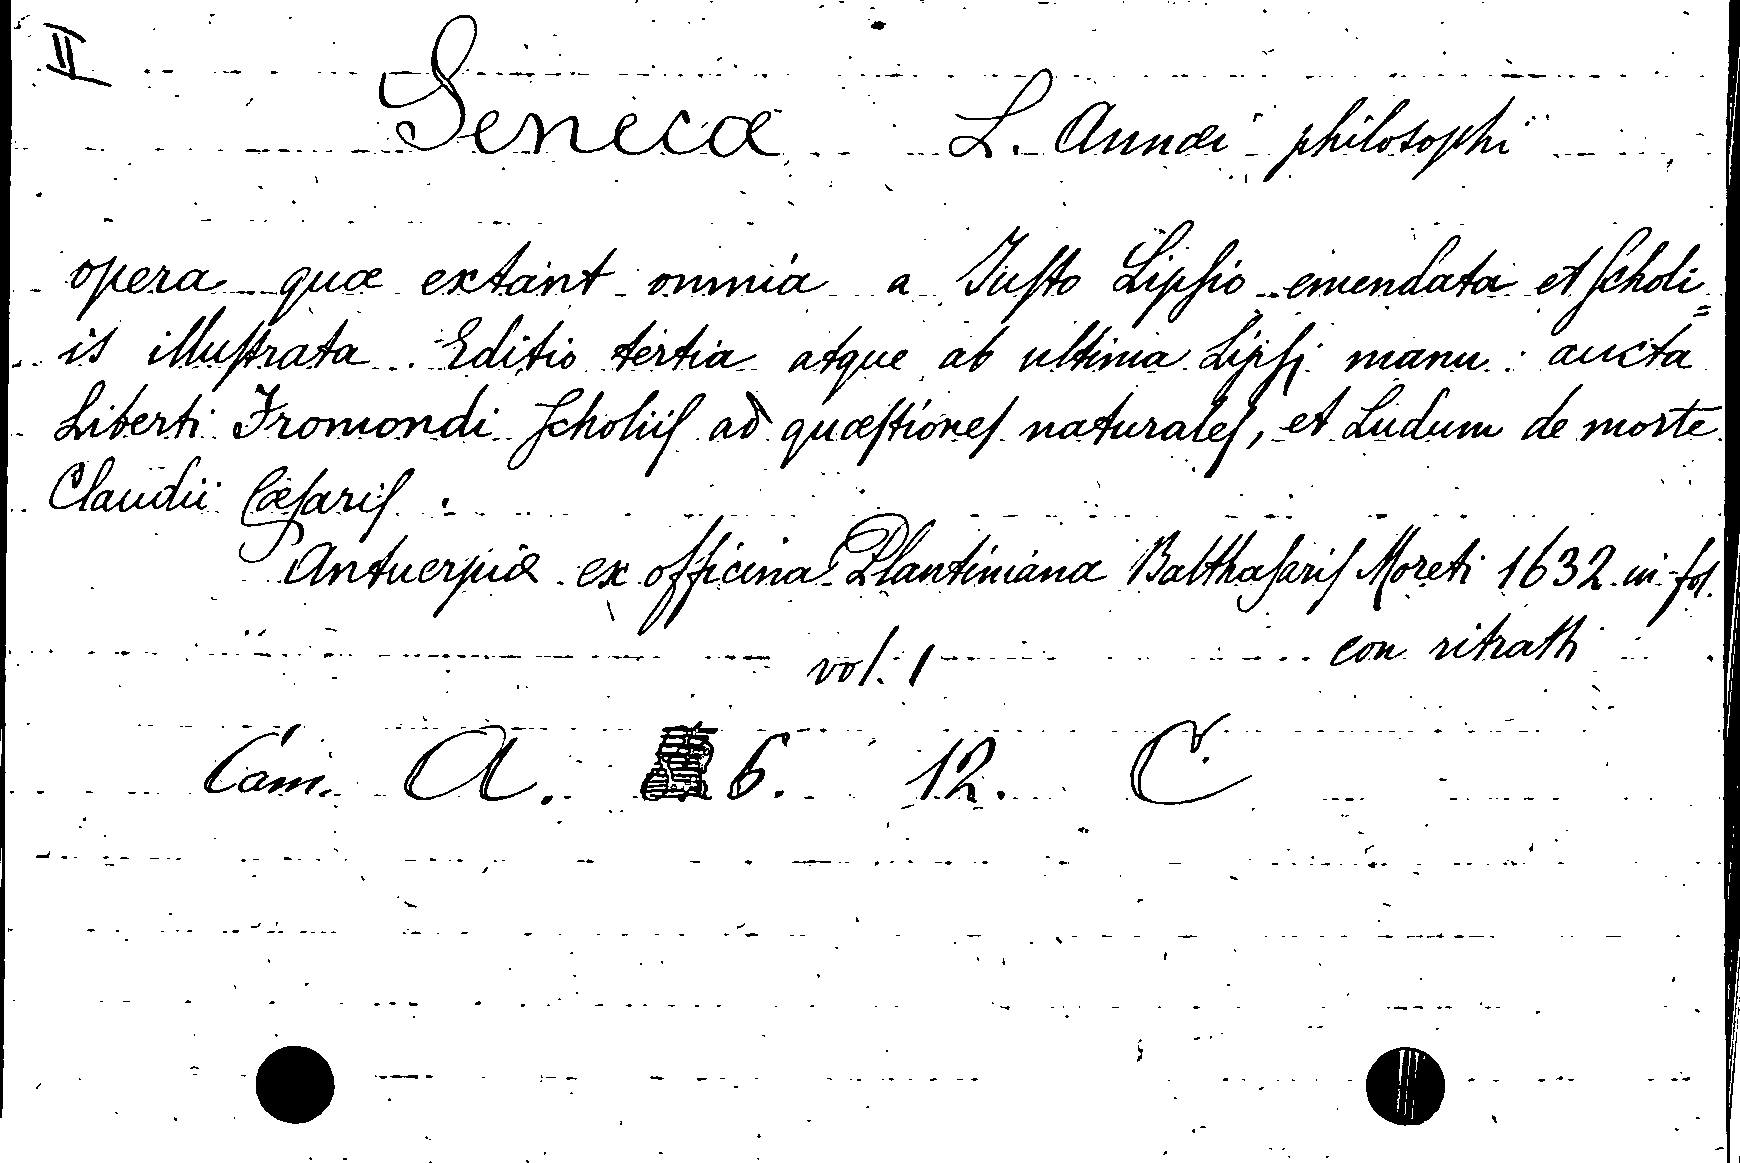 II
Senecæ L. Annæi philosophi
opera quæ extant omnia a Iuſto Lipſio emendata et ſcholi=
is illuſtrata. Editio tertia atque ab ultima Lipſj manu: aucta
Liberti Fromondi ſcholiiſ ad quæſtioneſ naturaleſ, et Ludum de morte
Claudii Cæſariſ.
Antuerpiæ ex officina Plantiniana Balthaſariſ Moreti 1632 in-fol.
vol. 1 con ritratti
Cam. A. 6. 12. C